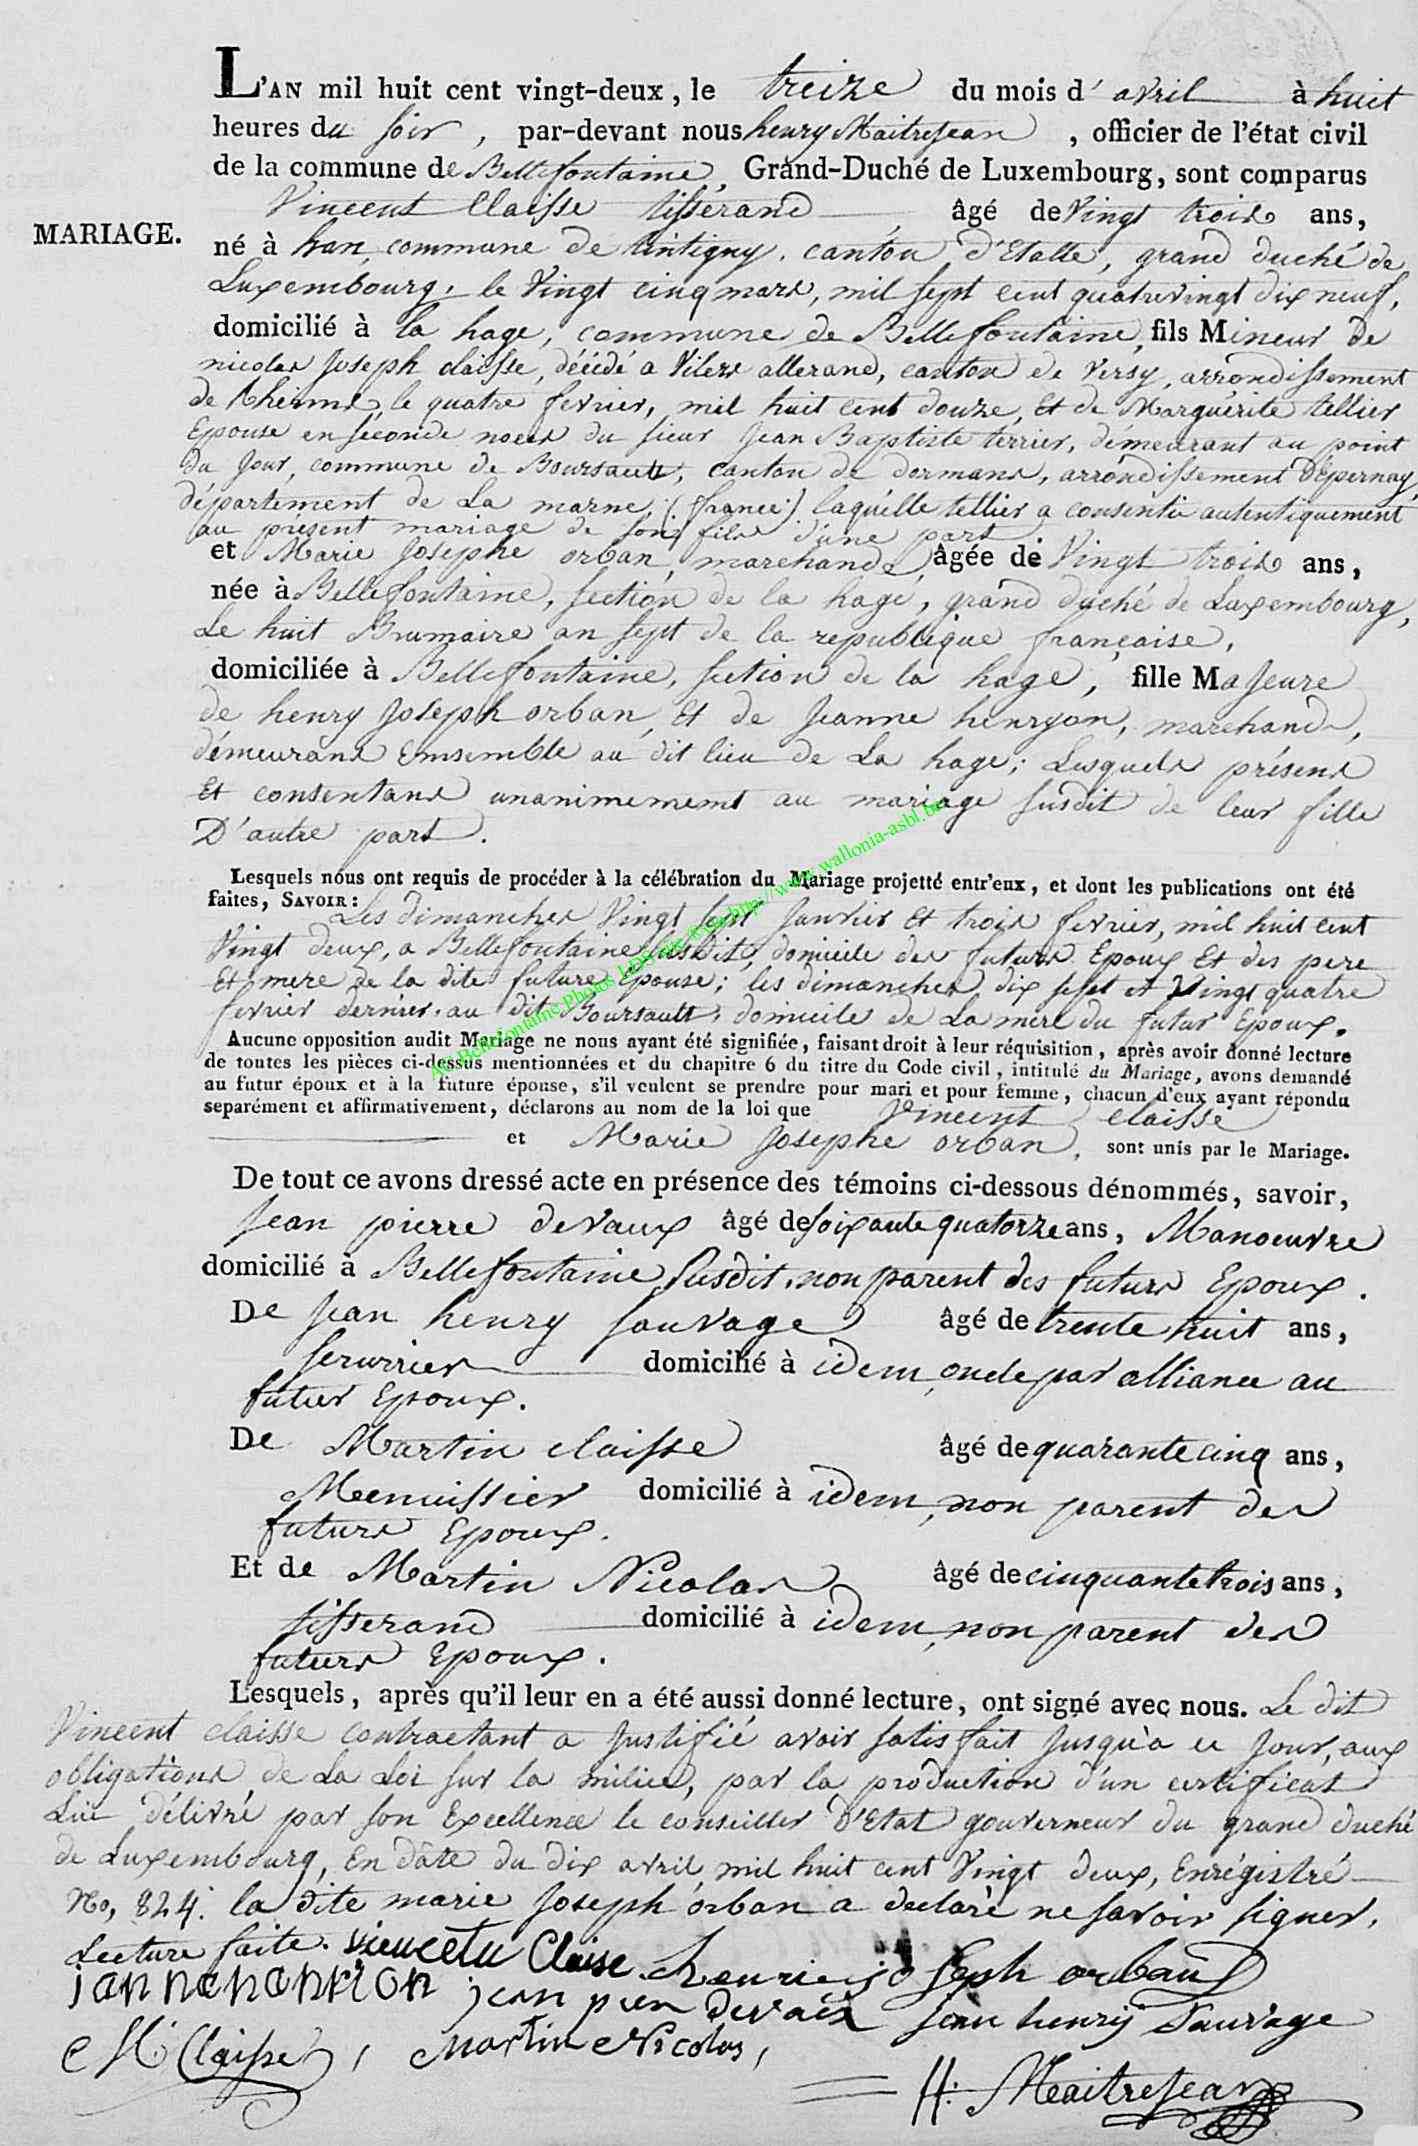 L'AN mil huit cent vingt-deux, le treize du mois d' avril à huit
heures du soir, par-devant nous henry Maitrejean, officier de l'état civil
de la commune de Bellefontaine, Grand-Duché de Luxembourg, sont comparus
Vincent Claisse tisserand âgé de Vingt trois ans,
MARIAGE.
né à han, commune de tintigny, canton d'Etalle, grand duché de
Luxembourg, le Vingt cinq mars, mil sept cent quatrevingt dix neuf,
domicilié à la hage, commune de Bellefontaine, fils Mineur de
nicolas Joseph claisse, décédé a Vilers allerand, canton de Versy, arrondissement
de Rheims, le quatre fevrier, mil huit cent douze, Et de Marguérite tellier
Epouse en séconde noces du sieur Jean Baptiste terrier, démeurant au point
du Jour, commune de Boursault, canton de dormans, arrondissement D'épernay,
département de La marne, (france) laquélle tellier a consentie autentiquement
au présent mariage de son fils d'une part
et Marie Josephe orban, marchande, âgée de Vingt trois ans,
née à Bellefontaine, section de la hage, grand duché de Luxembourg,
Le huit Brumaire an sept de la republique française,
domiciliée à Bellefontaine, section de la hage, fille Majeure
de henry Joseph orban, Et de Jeanne henryon, marchands,
démeurans Emsemble au dit lieu de La hage; Lesquels présens
Et consentans unanimement au mariage susdit de leur fille
D'autre part.
Lesquels nous ont requis de procéder à la célébration du Mariage projetté entr'eux, et dont les publications ont été
faites, SAVOIR:
Les dimanches Vingt sept Janvier Et trois fevrier, mil huit cent
Vingt deux, a Bellefontaine susdit, domicile des futurs Epoux Et des pere
Et mere de la dite future Epouse; les dimanches dix sept et Vingt quatre
fevrier dernier, au dit Boursault, domicile de La mere du futur Epoux.
Aucune opposition audit Mariage ne nous ayant été signifiée, faisant droit à leur réquisition, après avoir donné lecture
de toutes les pièces ci-dessus mentionnées et du chapitre 6 du titre du Code civil, intitulé du Mariage, avons demandé
au futur époux et à la future épouse, s'il veulent se prendre pour mari et pour femme, chacun d'eux ayant répondu
separément et affirmativement, déclarons au nom de la loi que Vincent claisse
et Marie Josephe orban, sont unis par le Mariage.
De tout ce avons dressé acte en présence des témoins ci-dessous dénommés, savoir,
Jean pierre devaux âgé de soixante quatorze ans, Manoeuvre
domicilié à Bellefontaine susdit, non parent des futurs Epoux.
De Jean henry sauvage âgé de trente huit ans,
serurrier domicilié à idem, oncle par alliance au
futur Epoux.
De Martin claisse âgé de quarante cinq ans,
Menuissier domicilié à idem, non parent des
futurs Epoux.
Et de Martin Nicolas âgé de cinquante trois ans,
tisserand domicilié à idem, non parent des
futurs Epoux.
Lesquels, après qu'il leur en a été aussi donné lecture, ont signé avec nous. Le dit
Vincent claisse contractant a Justifié avoir satisfait Jusqu'à ce Jour, aux
obligations de La Loi sur la milice, par la production d'un certificat
Lui délivré par son Excellence le conseiller D'Etat gouverneur du grand duché
de Luxembourg, En date du dix avril, mil huit cent Vingt deux, Enrégistré
No, 824. la dite marie Joseph orban a declaré ne savoir signer,
Lecture faite. vincetn Claise. henrie joseph orban
jannehenrion jean pier devaux Jean henrij Sauvage
M Claisse, Martin Nicolas,
H: Maitrejean